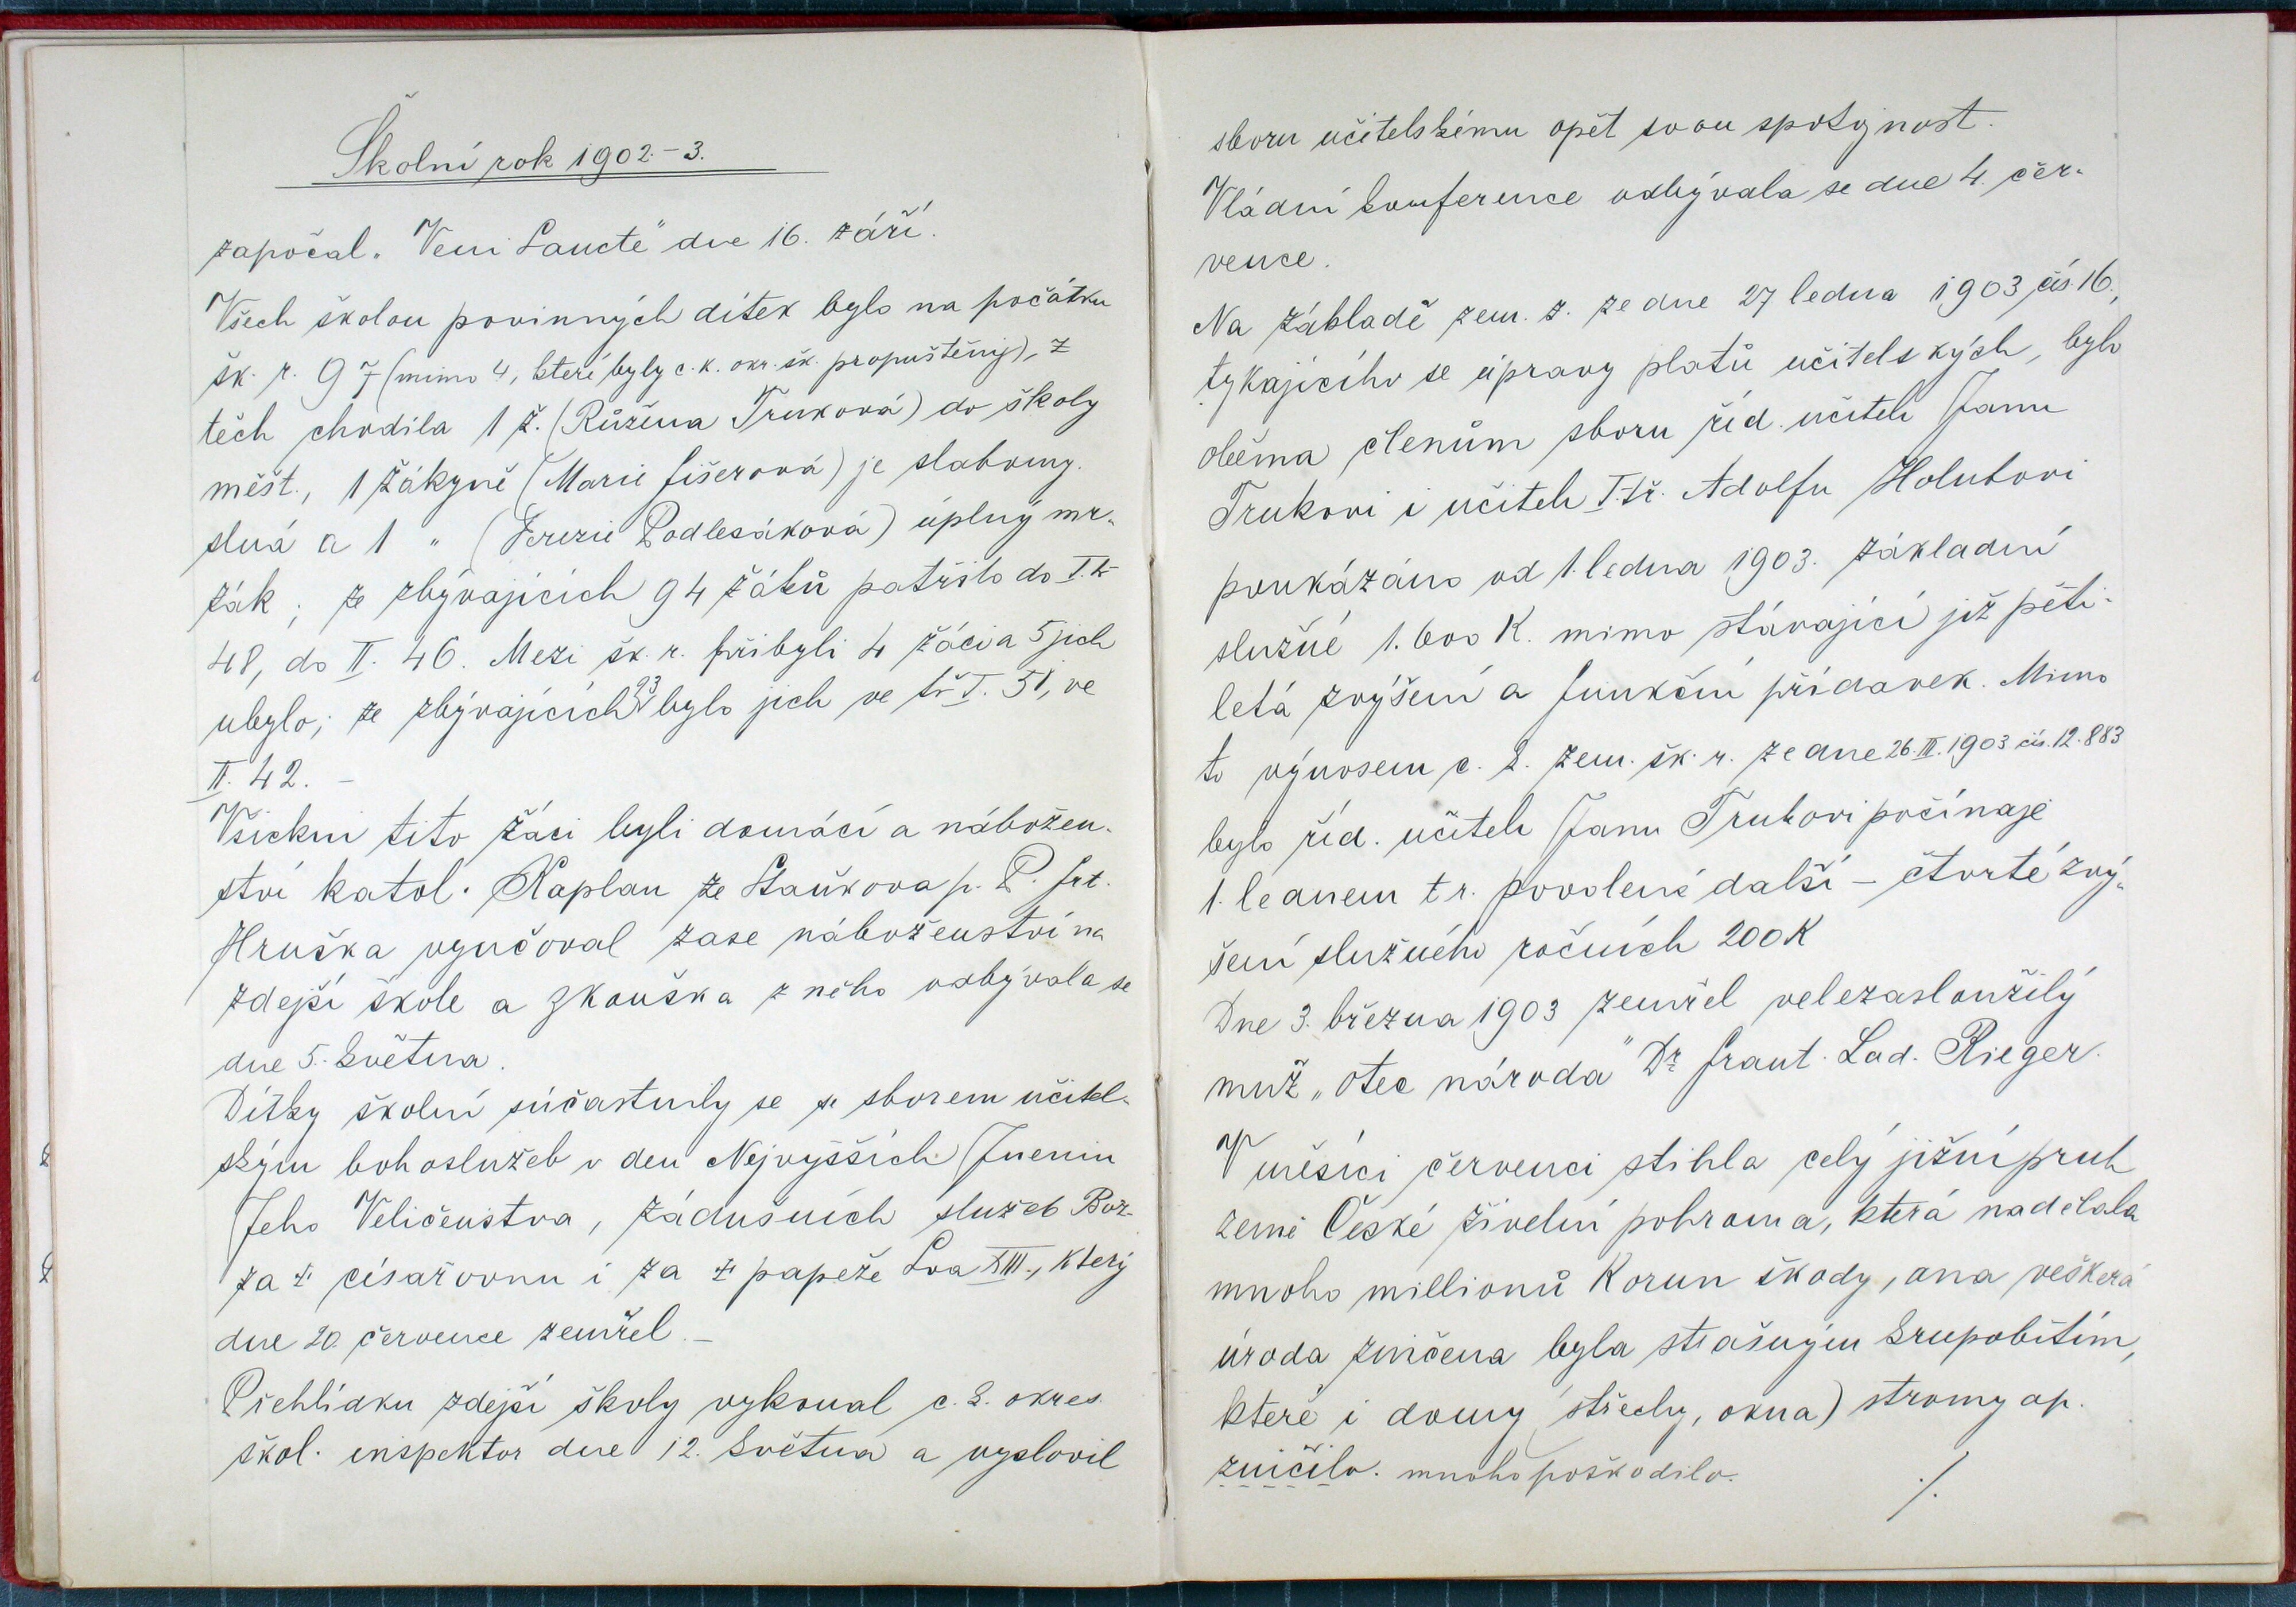 Školní rok 1902.-3.
započal „Veni Sancte" dne 16. září.
Všech školou povinných dítek bylo na počátku
šk. r. 97 (mimo 4, které byly c. k. okr. šk. propuštěny), z
těch chodila 1 ž. (Růžena Truková) do školy
měšt., 1 žákyně (Marie Fišerová) je slabomy-
slná a 1 " (Terezie Podlesáková) úplný mr-
zák; ze zbývajících 94 žáků patřilo do I. tř.
48, do II. 46. Mezi šk. r. přibyli 4 žáci a 5 jich
ubylo; ze zbývajících 93 bylo jich ve tř I. 51, ve
II. 42. –
Všickni tito žáci byli domácí a nábožen-
ství katol. Kaplan ze Staňkova p. P. Frt.
Hruška vyučoval zase náboženství na
zdejší škole a zkouška z něho odbývala se
dne 5. května.
Dítky školní súčastnily se se sborem učitel-
ským bohoslužeb v den Nejvyšších Jmenin
Jeho Veličenstva, zádušních služeb Bož.
za † císařovnu i za † papeže Lva XIII., který
dne 20. července zemřel. –
Přehlídku zdejší školy vykonal c. k. okres.
škol. inspektor dne 12. května a vyslovil
sboru učitelskému opět svou spokojnost.
Vládní konference odbývala se dne 4. čer-
vence.
Na základě zem. z. ze dne 27 ledna 1903 čís. 16.,
týkajícího se úpravy platů učitelských, bylo
oběma členům sboru říd. učiteli Janu
Trukovi i učiteli I. tř. Adolfu Holubovi
poukázáno od 1. ledna 1903. základní
služné 1.600 K. mimo stávající již pěti-
letá zvýšení a funkční přídavek. Mimo
to výnosem c. k. zem. šk. r. ze dne 26. III. 1903 čís. 12.883
bylo říd. učiteli Janu Trukovi počínaje
1. lednem t r. povolené další – čtvrté zvý-
šení služného ročních 200 K
Dne 3. března 1903 zemřel velezasloužilý
muž „otec národa" Dr. Frant. Lad. Rieger.
V měsíci červenci stihla celý jižní pruh
země České živelní pohroma, která nadělala
mnoho millionů Korun škody, ana veškerá
úroda zničena byla strašným krupobitím,
které i domy (střechy, okna) stromy ap.
zničilo. mnoho poškodilo. ./.